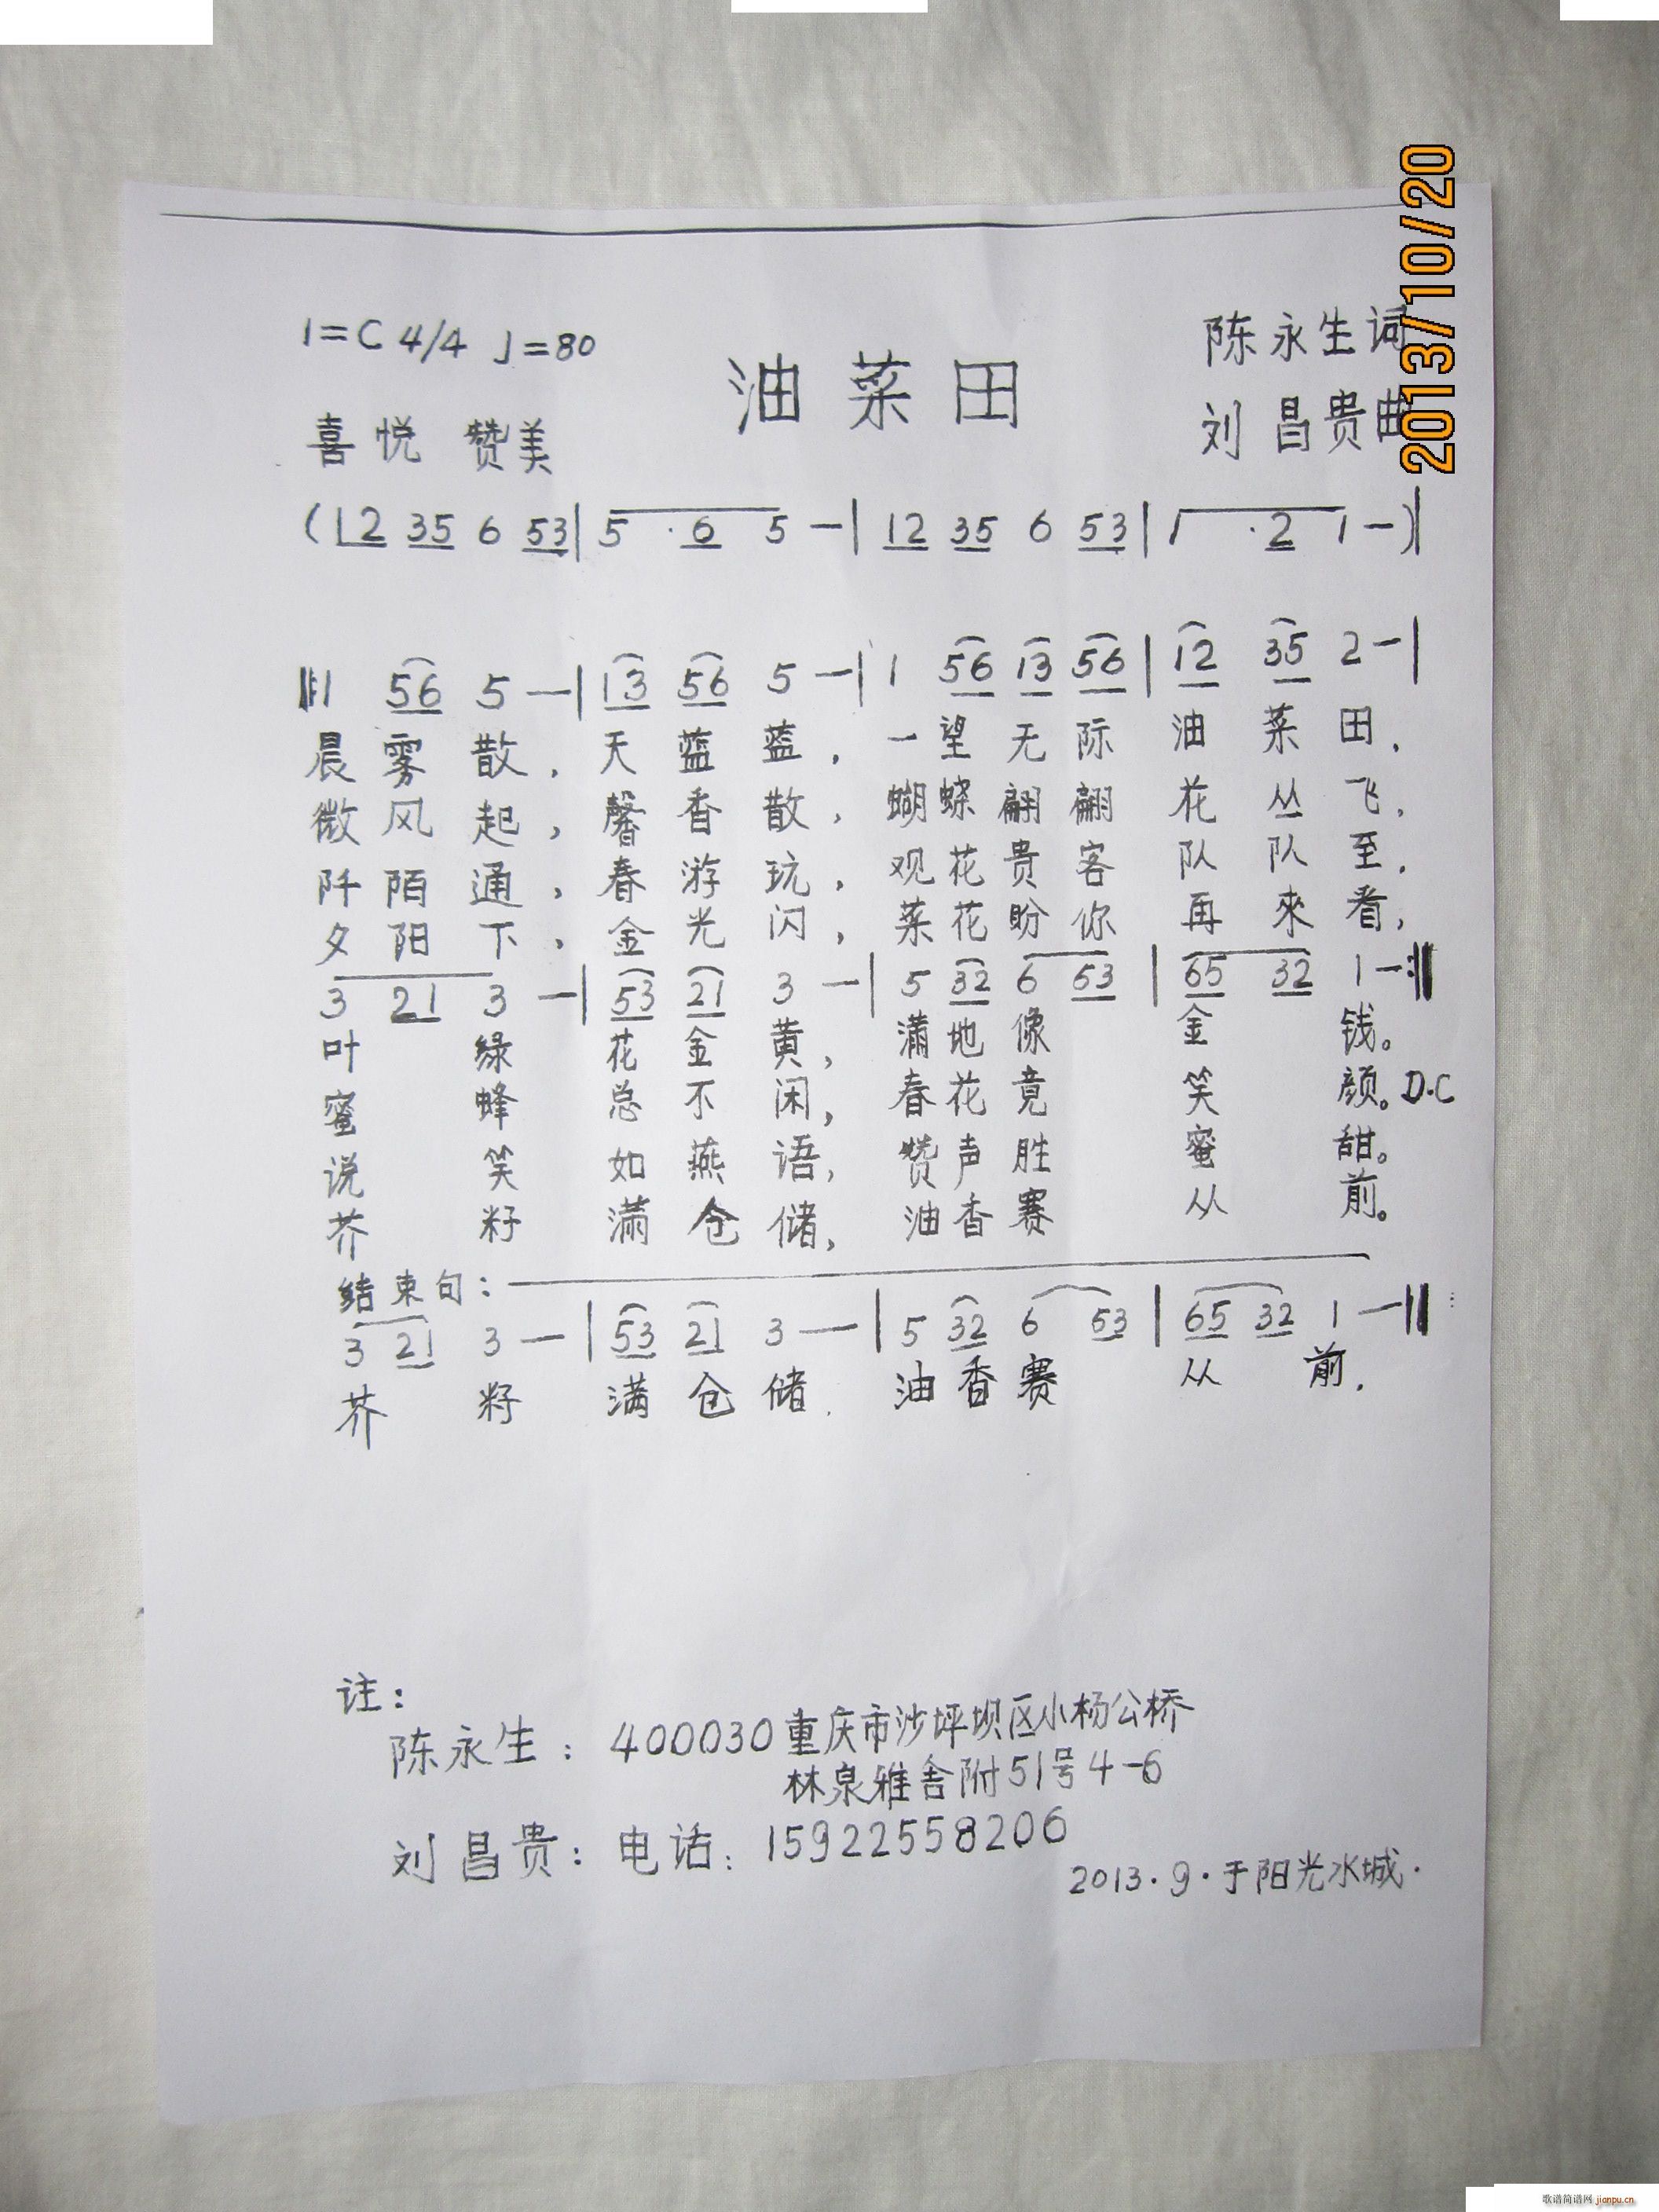 2013/10/20
1=C 4/4 ♩=80
油菜田
陈永生词
喜悦 赞美
刘昌贵曲
(12 35 6 53| 5 · 6 5 —| 12 35 6 53| 1 · 2 1 —)|
‖:1 56 5 —| 13 56 5 —| 1 56 13 56| 12 35 2 —|
晨雾散，天蓝蓝，一望无际油菜田，
微风起，馨香散，蝴蝶翩翩花丛飞，
阡陌通，春游玩，观花贵客队队至，
夕阳下，金光闪，菜花盼你再來看，
3 21 3 —| 53 21 3 —| 5 32 6 53| 65 32 1 —:‖
叶绿花金黄，满地像金钱。
蜜蜂总不闲，春花竟笑颜。D.C
说笑如燕语，赞声胜蜜甜。
芥籽满仓储，油香赛从前。
结束句：
3 21 3 —| 53 21 3 —| 5 32 6 53| 65 32 1 —‖
芥籽满仓储.油香赛从前.
注：
陈永生：400030重庆市沙坪坝区小杨公桥
林泉雅舍附51号4-6
刘昌贵：电话：15922558206
2013.9.于阳光水城.
歌谱简谱网 jianpu.cn